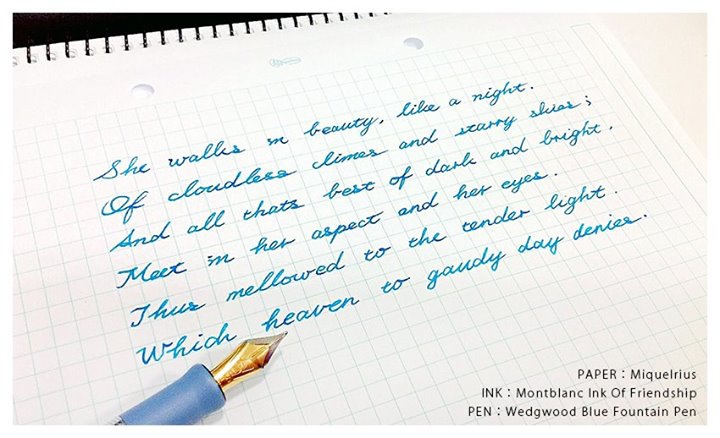 She walks in beauty, like a night.
Of cloudless climes and starry skies;
And all thats best of dark and bright.
Meet in her aspect and her eyes.
Thus mellowed to the tender light.
Which heaven to gaudy day denies.
PAPER：Miquelrius
INK：Montblanc Ink Of Friendship
PEN：Wedgwood Blue Fountain Pen